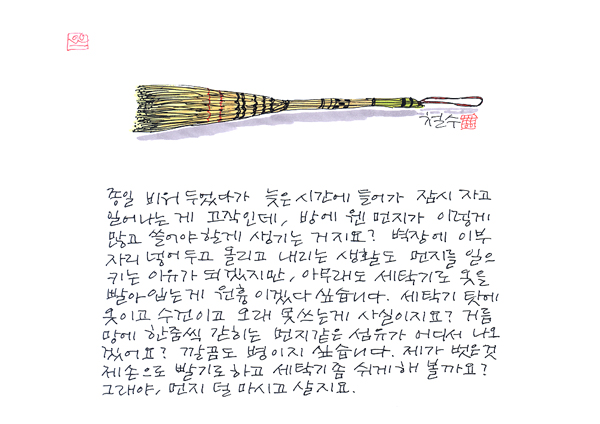 철수
종일 비워 두었다가 늦은 시간에 들어가 잠시 자고
일어나는 게 고작인데, 방에 웬 먼지가 이렇게
많고 쓸어야 할게 생기는 거지요? 벽장에 이부
자리 넣어두고 올리고 내리는 생활도 먼지를 일으
키는 이유가 되겠지만, 아무래도 세탁기로 옷을
빨아입는게 원흉 이겠다 싶습니다. 세탁기 탓에
옷이고 수건이고 오래 못쓰는게 사실이지요? 거름
망에 한줌씩 갇히는 먼지같은 섬유가 어디서 나오
겠어요? 깔끔도 병이지 싶습니다. 제가 벗은것
제손으로 빨기로하고 세탁기좀 쉬게해 볼까요?
그래야, 먼지 덜 마시고 살지요.